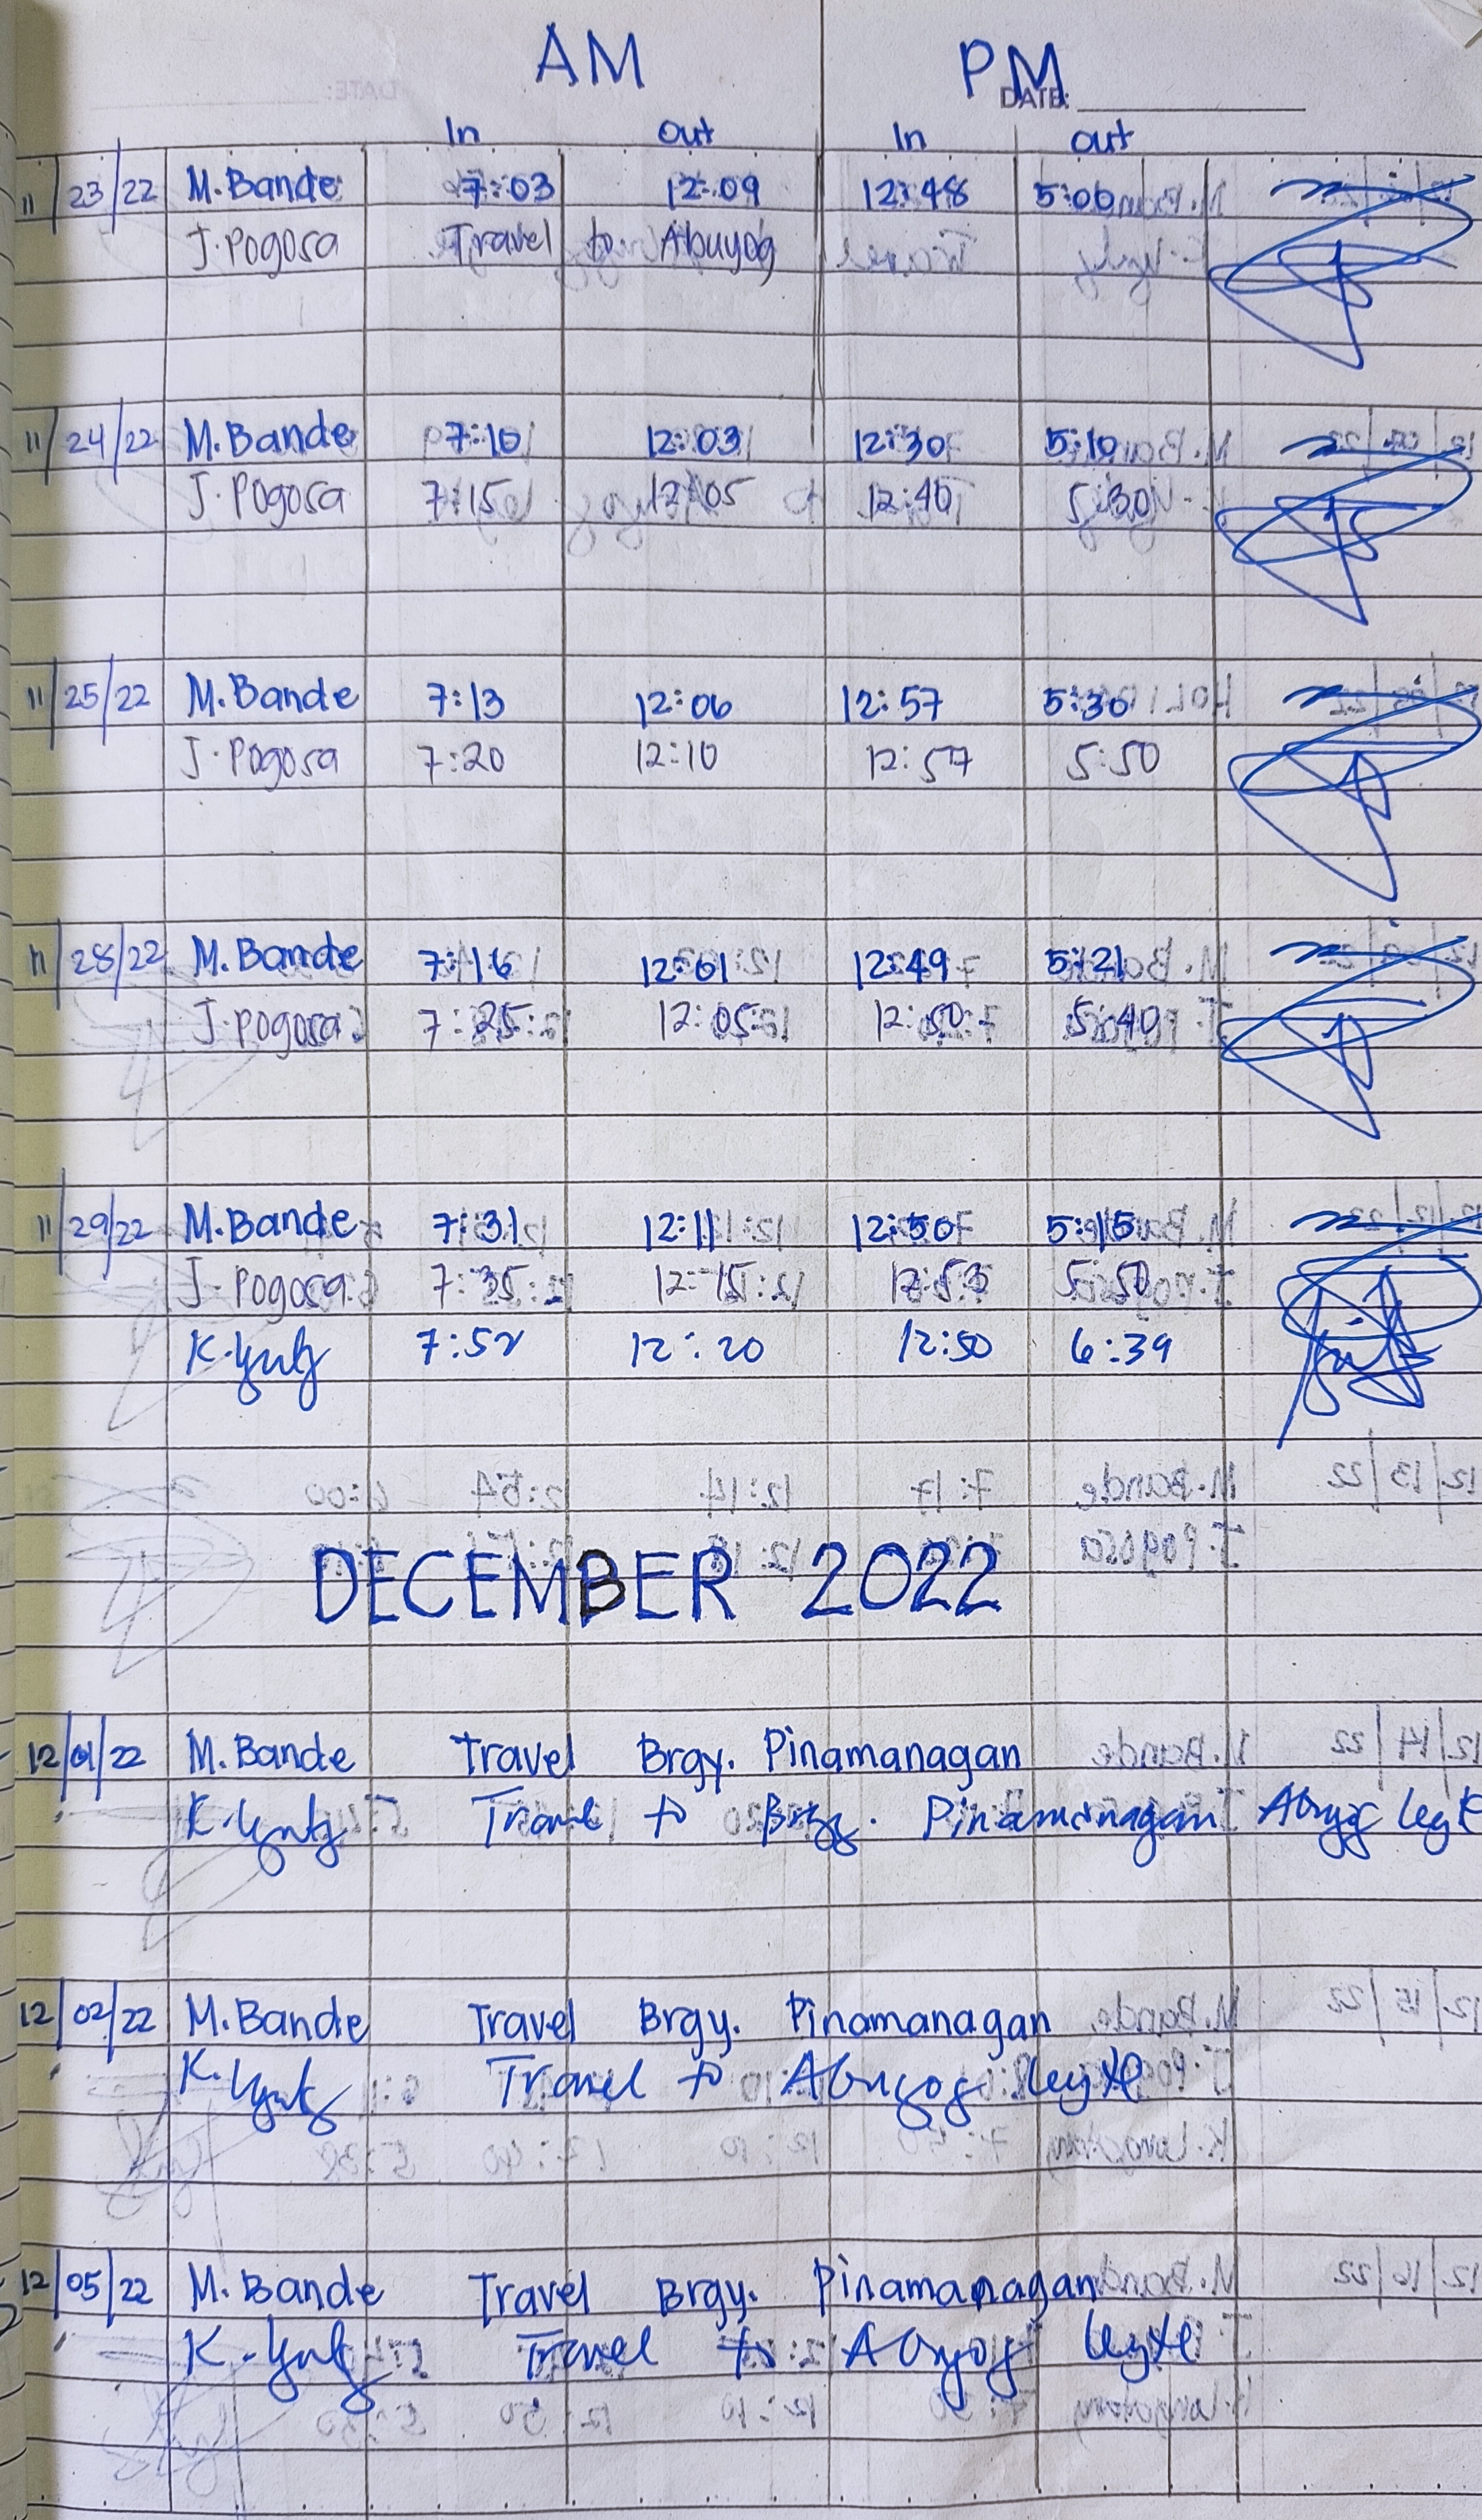 AM PM
DATE:
In Out In out
11/23/22 M.Bande 7:03 12:09 12:48 5:00
J.Pogosa Travel to Abuyog
11/24/22 M.Bande 7:10 12:03 12:30 5:10
J.Pogosa 7:15 12:05 12:40 5:30
11/25/22 M.Bande 7:13 12:06 12:57 5:30
J.Pogosa 7:20 12:10 12:57 5:50
11/28/22 M.Bande 7:16 12:01 12:49 5:21
J.Pogosa 7:25 12:05 12:50 5:40
11/29/22 M.Bande 7:31 12:11 12:50 5:15
J.Pogosa 7:35 12:15 12:53 5:50
K. 7:52 12:20 12:50 6:39
DECEMBER 2022
12/01/22 M.Bande Travel Brgy. Pinamanagan
K. Travel to Brgy. Pinamanagan Abuyog Leyte
12/02/22 M.Bande Travel Brgy. Pinamanagan
K. Travel to Abuyog Leyte
12/05/22 M.Bande Travel Brgy. Pinamanagan
K. Travel to Abuyog Leyte